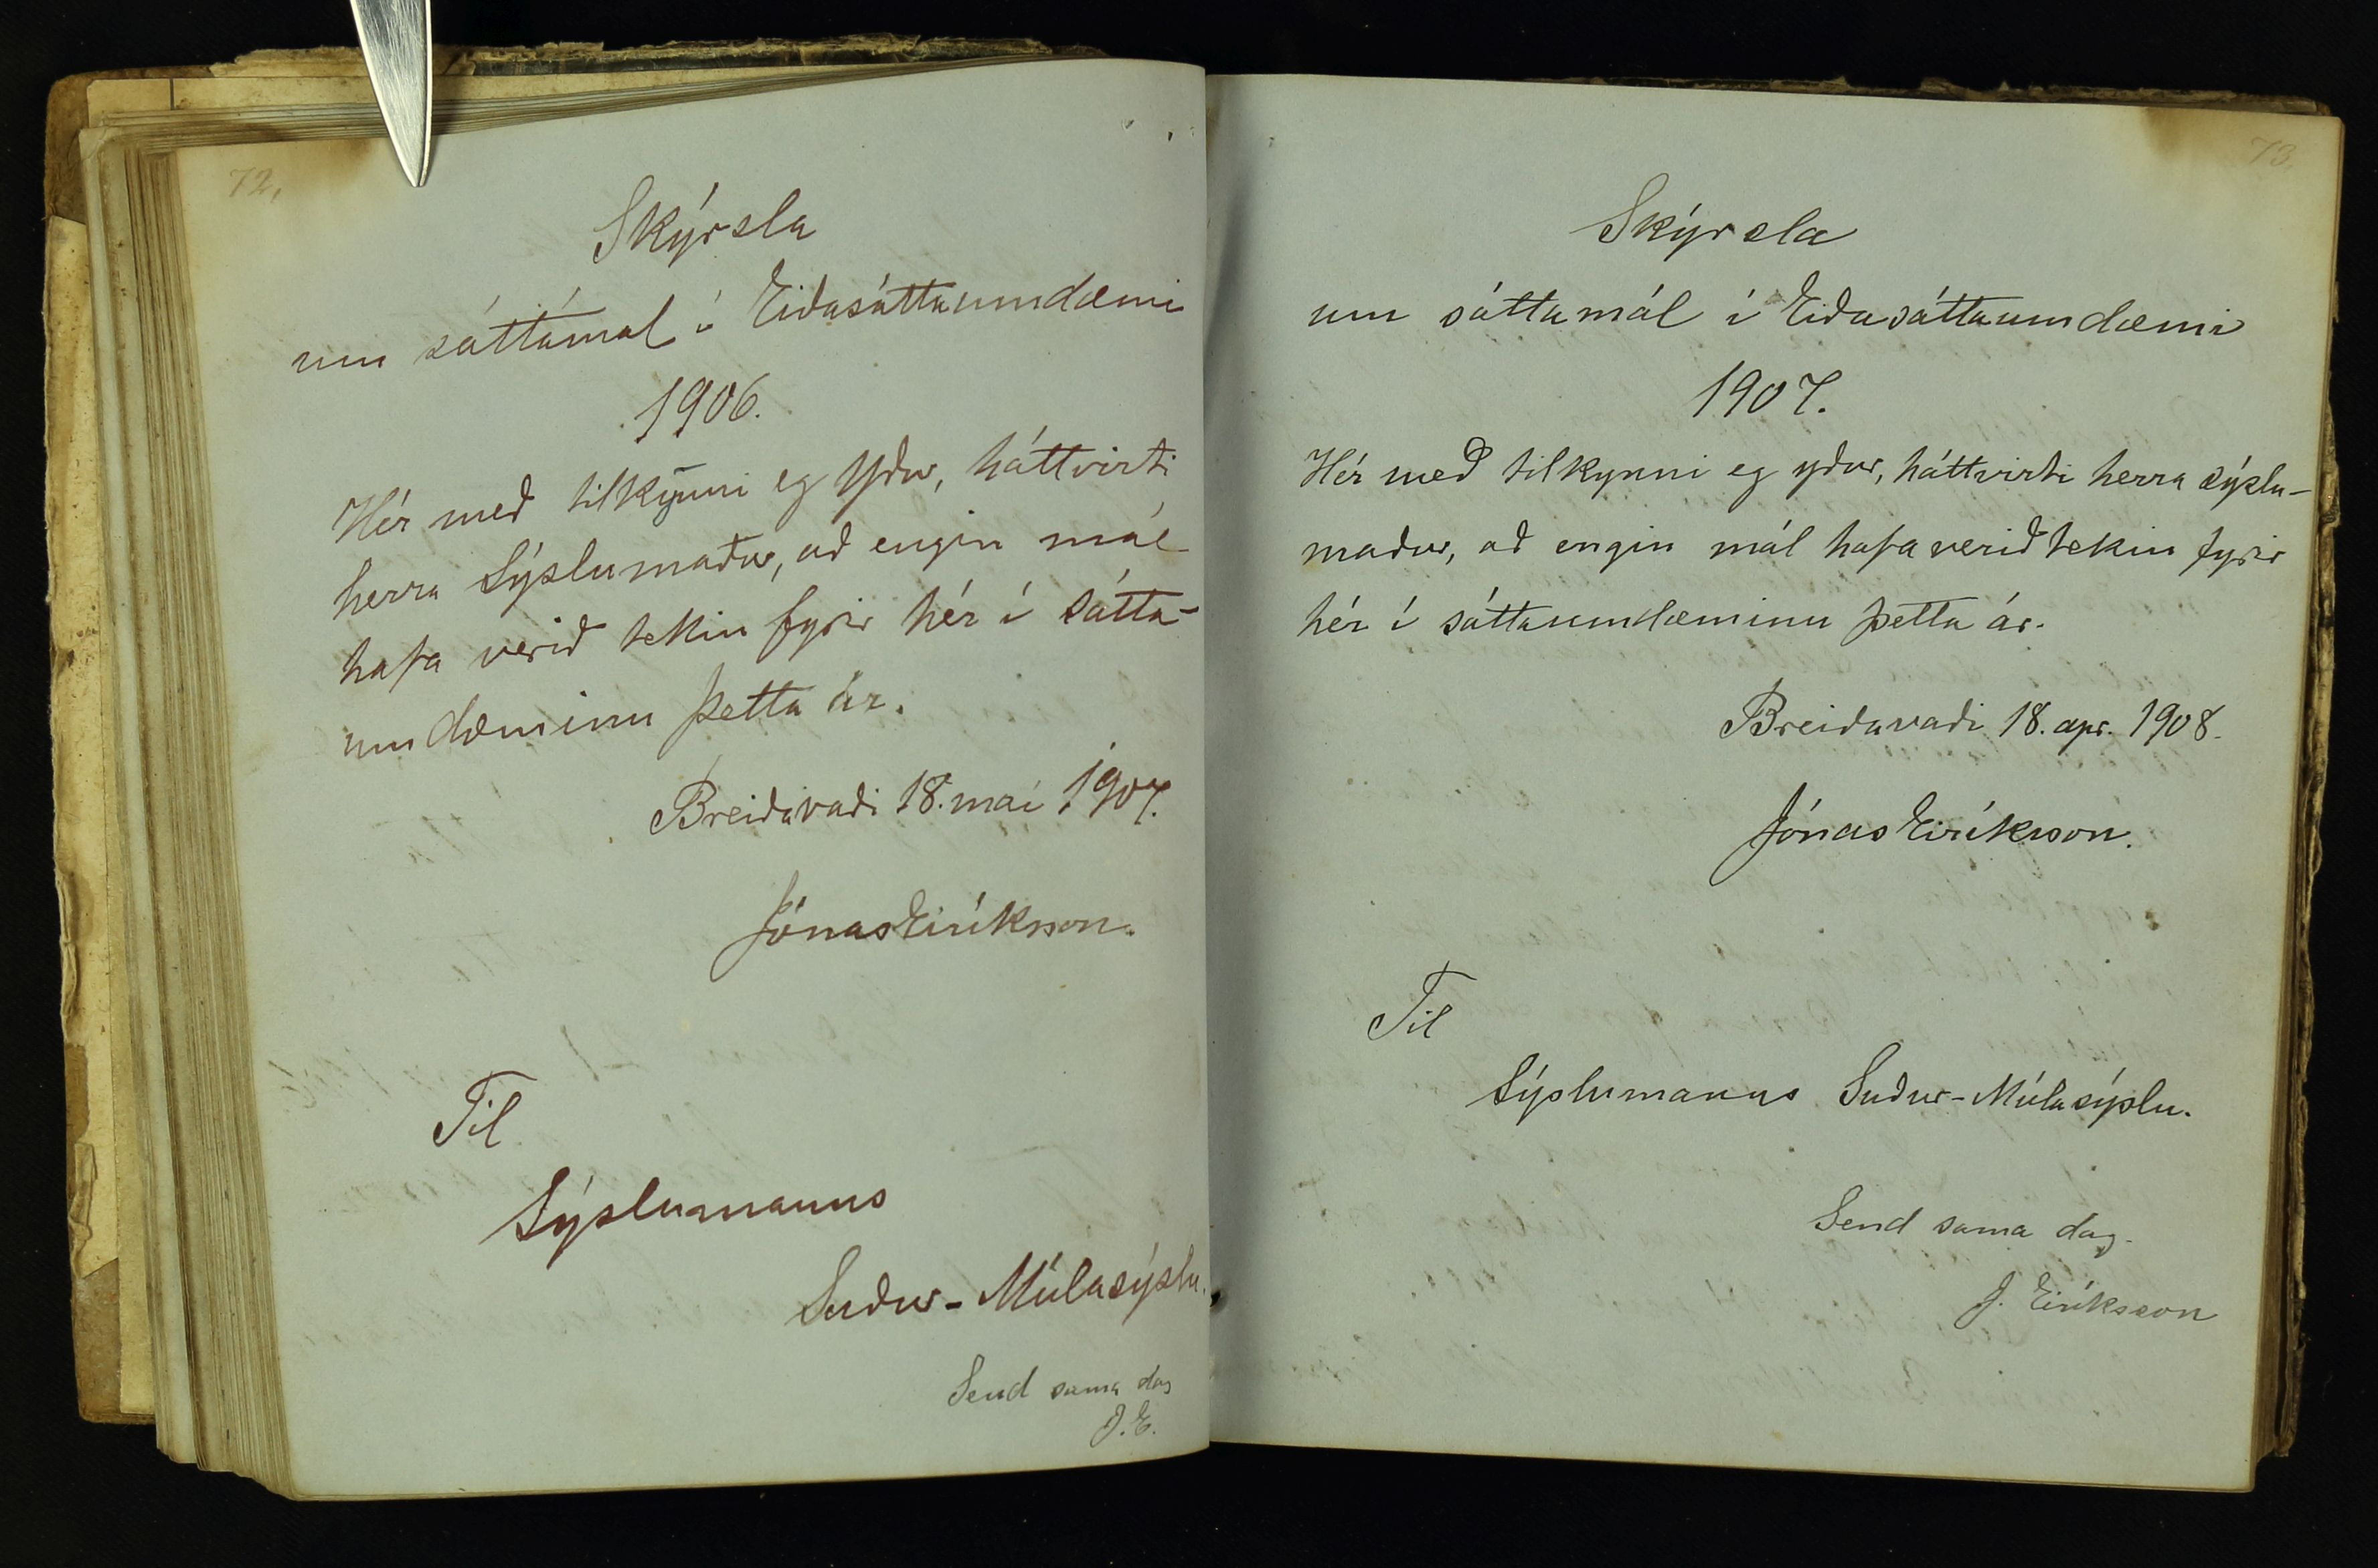 72.
Skýrsla
um sáttamál í Eiðasáttaumdæmi
1906.
Hér með tilkynni eg Yður, háttvirti
herra Sýslumaður, að engin mál
hafa verið tekin fyrir hér í sátta-
umdæminu þetta ár.
Breiðavaði 18. mai 1907.
Jónas Eiríksson.
Til
Sýslumanns
Suður-Múlasýslu.
Send sama dag
J.E.
73.
Skýrsla
um sáttamál í Eiðasáttaumdæmi
1907.
Hér með tilkynni eg yður, háttvirti herra sýslu-
maður, að engin mál hafa verið tekin fyrir
hér í sáttaumdæminu þetta ár.
Breiðavaði 18. apr. 1908.
Jónas Eiríksson.
Til
Sýslumanns Suður-Múlasýslu.
Send sama dag.
J. Eiríksson